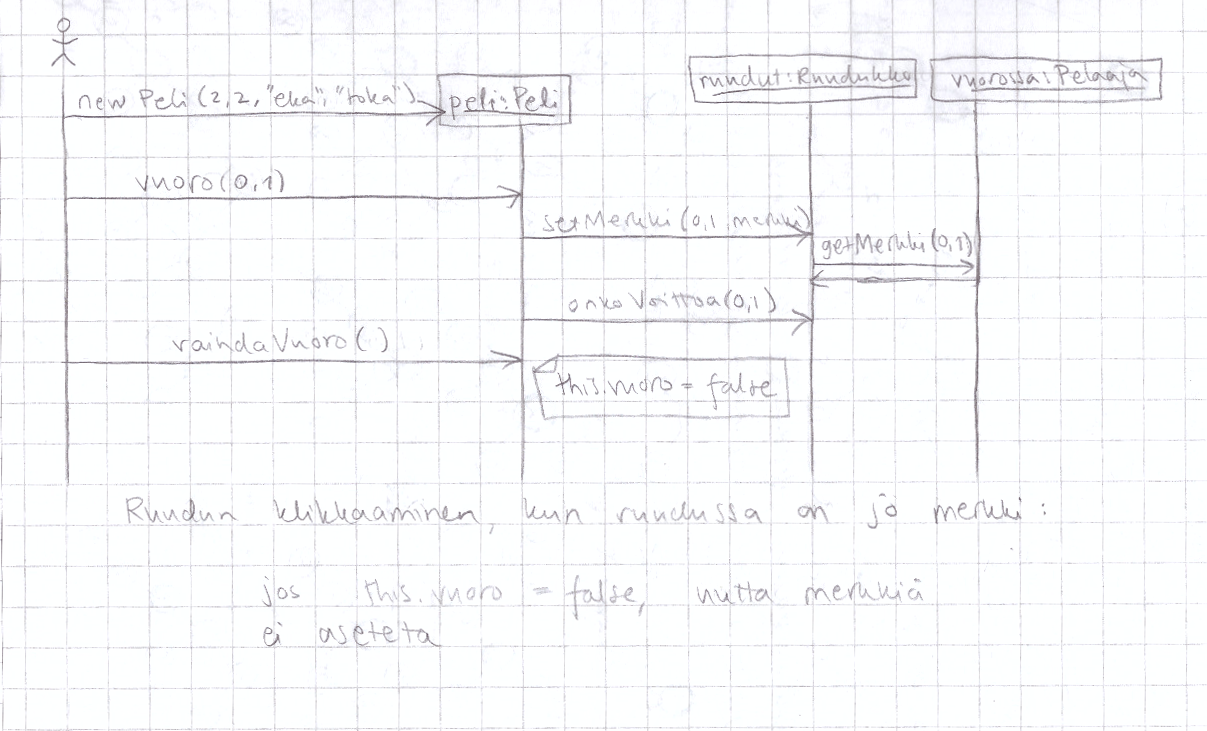 new Peli (2,2,"eka","toka")
peli:Peli
ruudut:Ruudukko
vuorossa:Pelaaja
vuoro(0,1)
setMerkki(0,1,merkki)
getMerkki(0,1)
onkoVoittoa(0,1)
vaihdaVuoro()
this.vuoro = false
Ruudun klikkaaminen, kun ruudussa on jo merkki:
jos this.vuoro = false, uutta merkkiä
ei aseteta